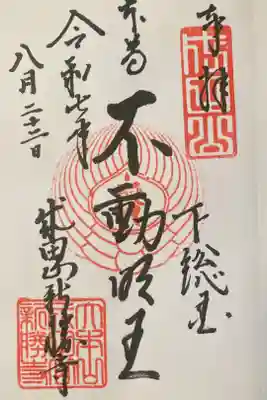 奉拝
成田山
下総国
本尊
不動明王
令和七年
八月二十二日
成田山新勝寺
大本山
新勝寺